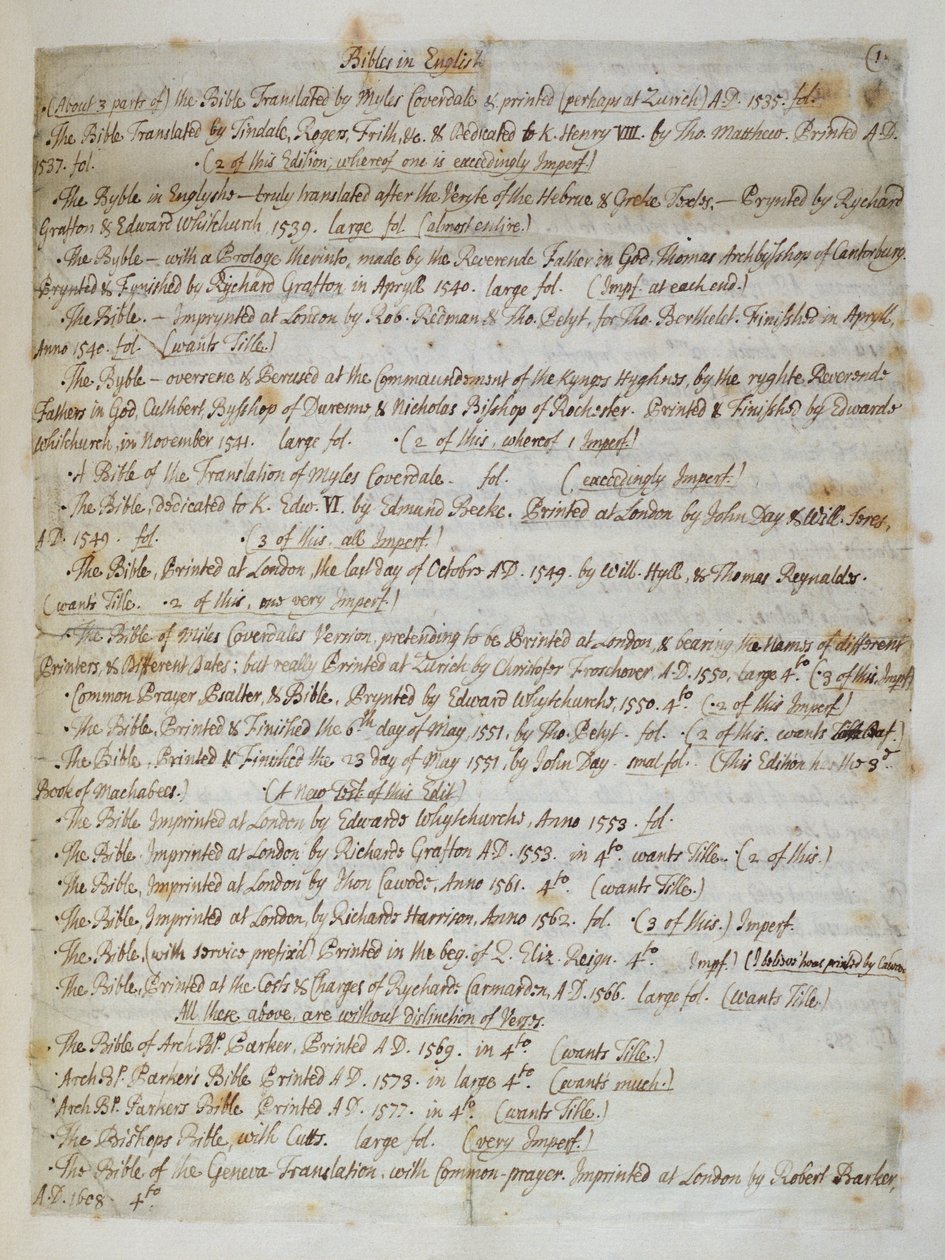 Bibles in English
(1.
·(About 3 parts of) the Bible Translated by Myles Coverdale & printed (perhaps at Zurich) A.D. 1535. fol.
·The Bible Translated by Tindale, Rogers, Frith, &c. & Dedicated to K. Henry VIII. by Tho. Matthew. Printed A.D.
1537. fol. ·(2 of this Edition, whereof one is exceedingly Imperf.)
·The Byble in Englyshe — truly translated after the Veryte of the Hebrue & Greke Textes. — Prynted by Rychard
Grafton & Edward Whitchurch, 1539. large fol. (almost entire.)
·The Byble — with a Prologe therinto, made by the Reverende Father in God, Thomas Archbysshop of Cantorbury.
Prynted & Fynished by Rychard Grafton in Apryll 1540. large fol. (Impf. at each end.)
·The Bible. — Imprynted at London by Rob. Redman & Tho. Petyt, for Tho. Berthelet. Finisshed in Apryll,
Anno 1540. fol. (wants Title.)
·The Byble — oversene & Perused at the Commaundement of the Kynges Hyghnes, by the ryghte Reverende
Fathers in God, Cuthbert, Bysshop of Duresme & Nicholas Bisshop of Rochester. Printed & Finisshed by Edwarde
Whitchurch, in November 1541. large fol. ·(2 of this, whereof 1 Imperf.)
·A Bible of the Translation of Myles Coverdale. fol. (exceedingly Imperf.)
·The Bible, dedicated to K. Edw. VI. by Edmund Becke. Printed at London by John Day & Will. Seres,
A.D. 1549. fol. ·(3 of this, all Imperf.)
·The Bible, Printed at London, the last day of Octobre A.D. 1549. by Will. Hyll, & Thomas Reynaldes.
(wants Title. ·2 of this, one very Imperf.)
·The Bible of Miles Coverdales Version, pretending to be Printed at London, & bearing the Names of different
Printers, & Different Dates; but really Printed at Zurich by Christofer Froschover, A.D. 1550, large 4.to (·3 of this, Impf)
·Common Prayer, Psalter, & Bible, Prynted by Edward Whytchurche, 1550. 4.to (·2 of this Imperf.)
·The Bible, Printed & Finished the 6th day of May, 1551, by Tho. Petyt. fol. ·(2 of this. wants
·The Bible, Printed & Finished the 23 day of May 1551, by John Day. smal fol. (This Edition has the 3d
Book of Machabees.) (A New Test. of this Edit)
·The Bible Imprinted at London by Edwarde Whytchurche, Anno 1553. fol.
·The Bible Imprinted at London by Richarde Grafton A.D. 1553. in 4to. wants Title. ·(2 of this.)
·The Bible, Imprinted at London by Jhon Cawode, Anno 1561. 4to. (wants Title.)
·The Bible, Imprinted at London, by Richarde Harrison, Anno 1562. fol. ·(3 of this.) Imperf.
·The Bible, (with service prefix'd) Printed in the beg. of Q. Eliz. Reign. 4to Impf.) (I believe 'twas printed by Cawode
·The Bible, Printed at the Costs & Charges of Rycharde Carmarden, A.D. 1566. large fol. (wants Title.)
All these above, are without distinction of Verses.
·The Bible of ArchBp. Parker, Printed A.D. 1569. in 4to (wants Title.)
·ArchBp. Parker's Bible Printed A.D. 1573. in large 4to. (wants much.)
·ArchBp. Parkers Bible Printed A.D. 1577. in 4to. (wants Title.)
·The Bishops Bible, with Cutts. large fol. (very Imperf.)
·The Bible of the Geneva-Translation, with Common-prayer. Imprinted at London by Robert Barker,
A.D. 1608 4to